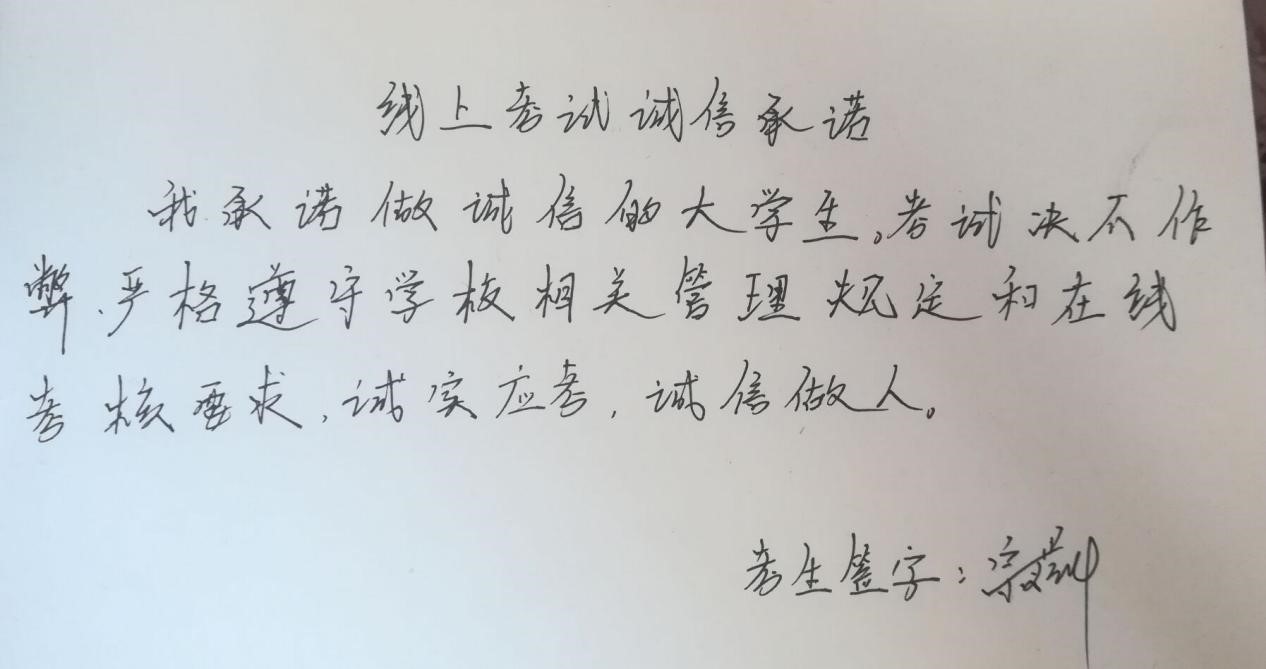 线上考试诚信承诺
我承诺做诚信的大学生。考试决不作
弊、严格遵守学校相关管理规定和在线
考核要求,诚实应考,诚信做人。
考生签字: